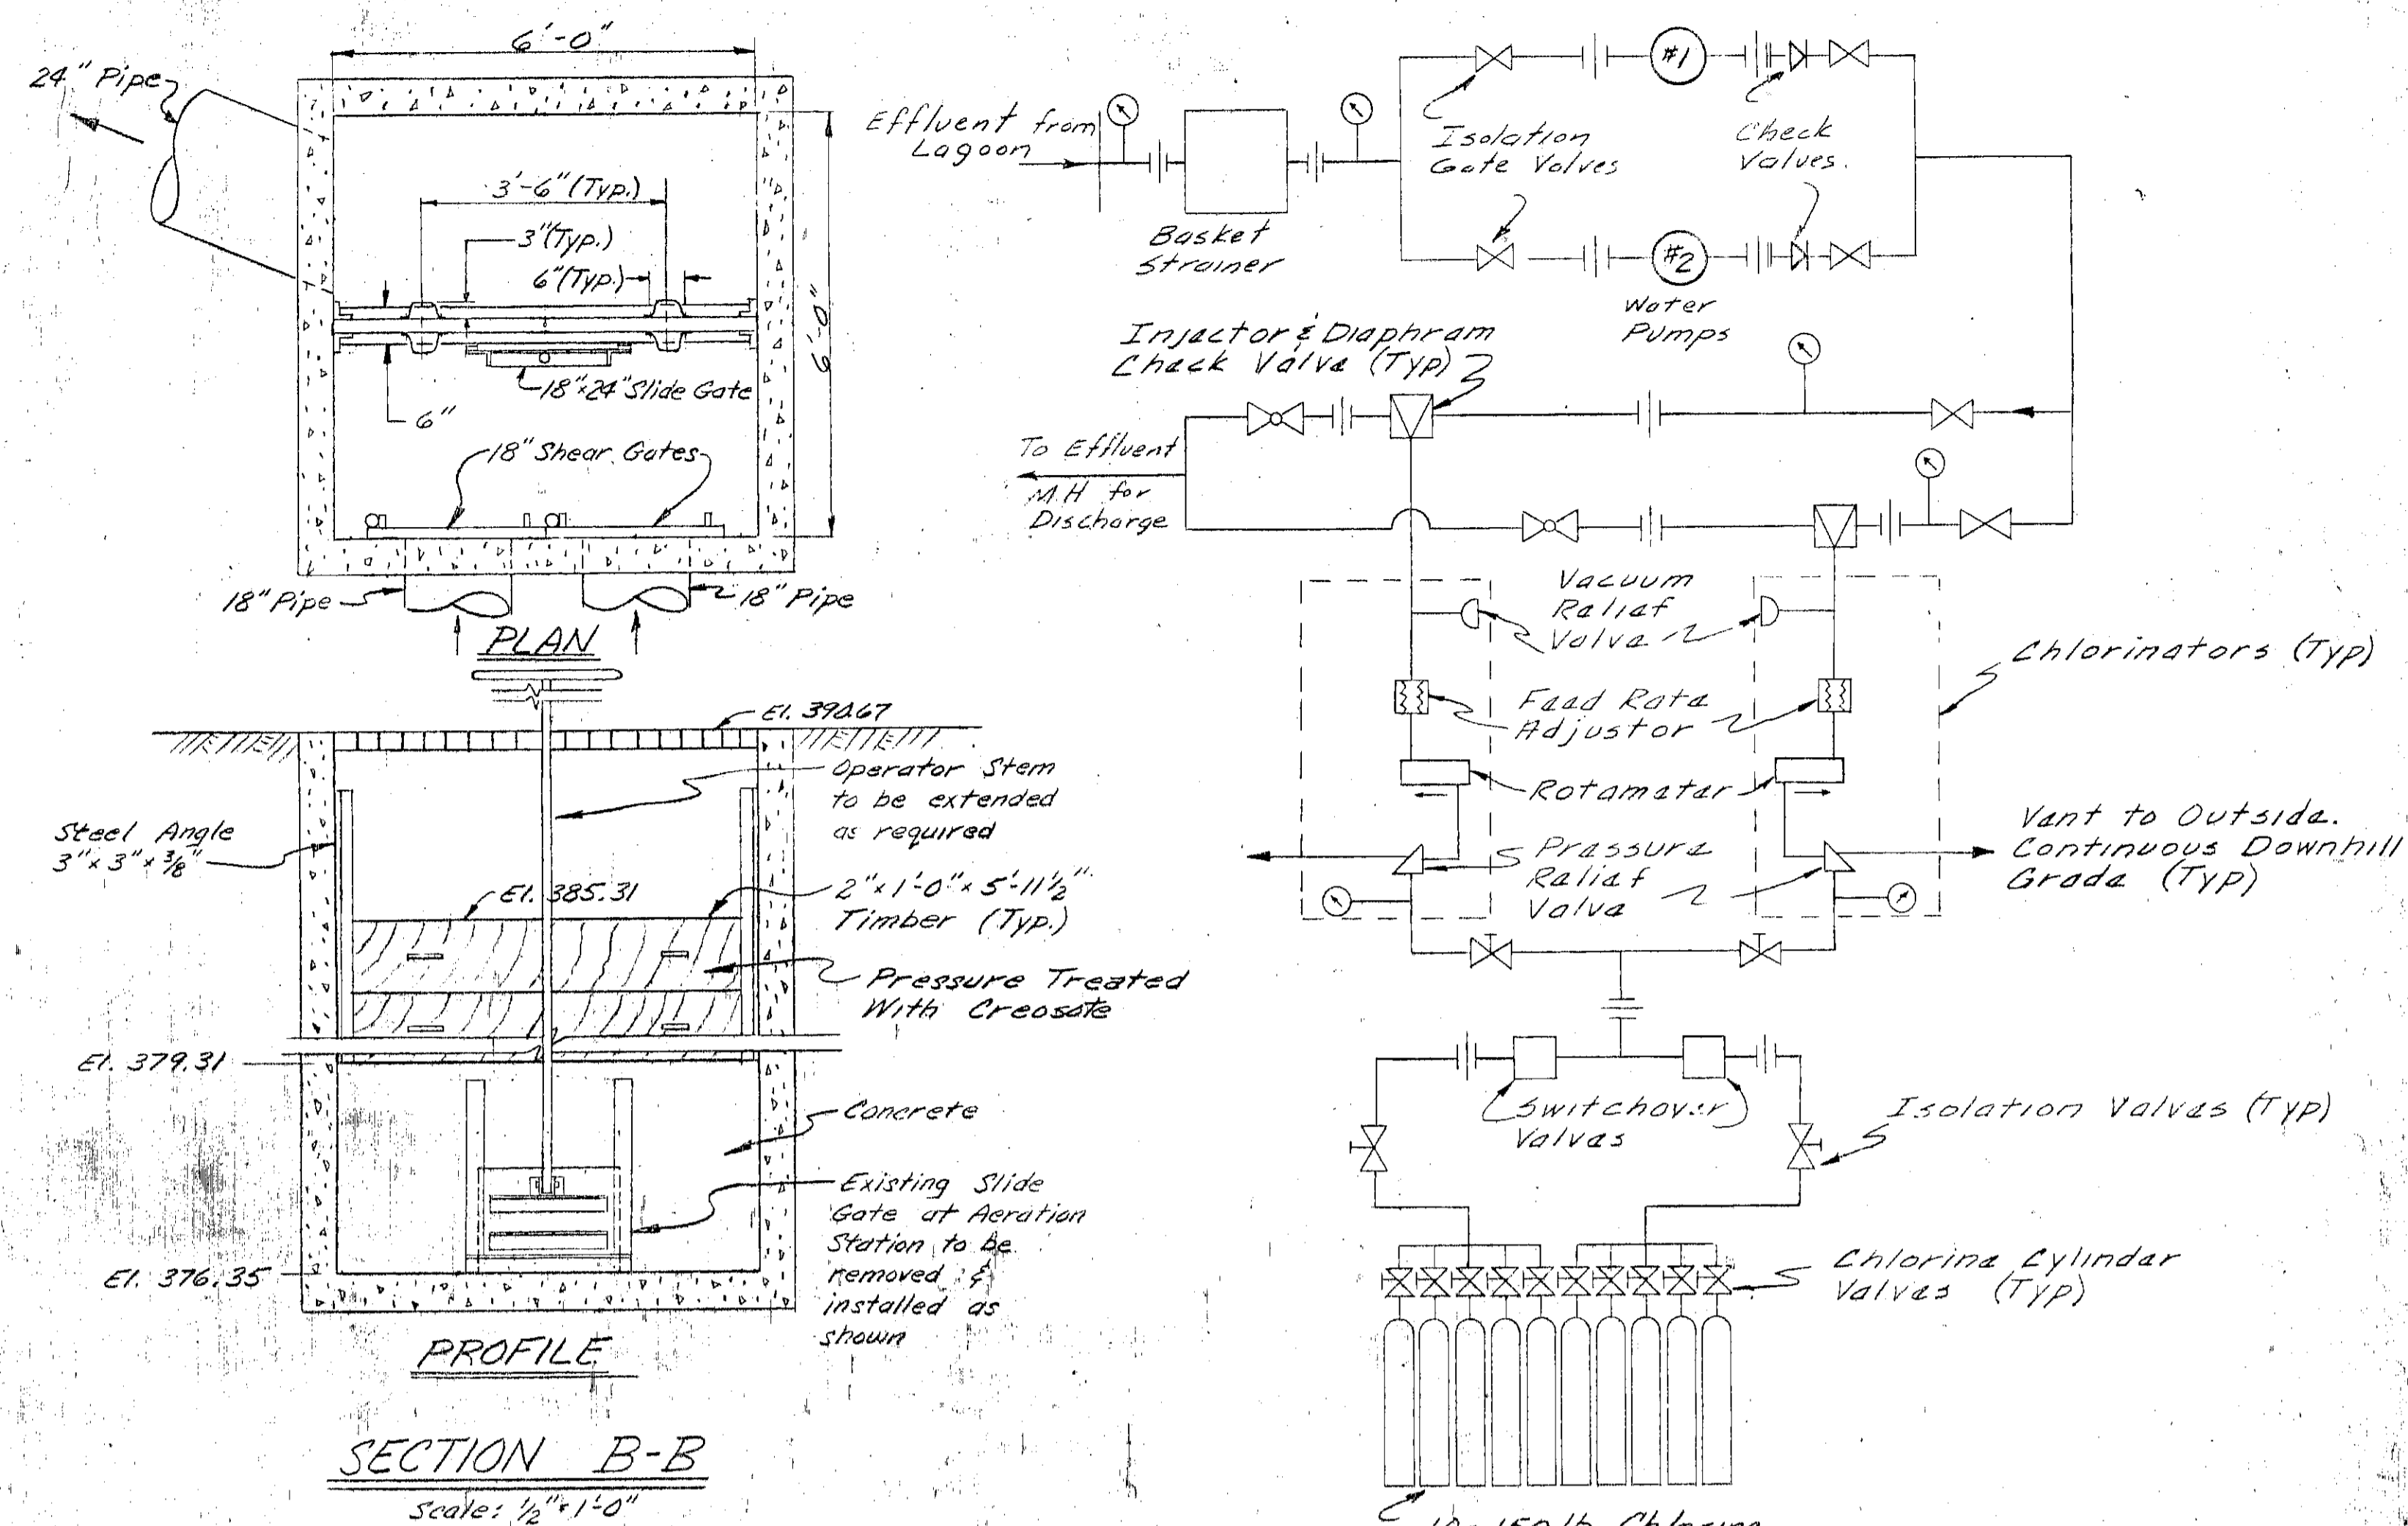 6'-0"
24" Pipe
3'-6" (Typ.)
3" (Typ.)
6" (Typ.)
6'-0"
18"x24" Slide Gate
6"
18" Shear Gates
18" Pipe
18" Pipe
PLAN
El. 390.67
Operator Stem
to be extended
as required
Steel Angle
3" x 3" x 3/8"
El. 385.31
2" x 1'-0" x 5'-11 1/2"
Timber (Typ.)
Pressure Treated
With Creosote
El. 379.31
Concrete
Existing Slide
Gate at Aeration
Station to be
removed &
installed as
shown
El. 376.35
PROFILE
SECTION B-B
Scale: 1/2" = 1'-0"
Effluent from
Lagoon
Basket
Strainer
#1
Isolation
Gate Valves
Check
Valves.
#2
Water
Pumps
Injector & Diaphram
Check Valve (Typ)
To Effluent
M.H for
Discharge
Vacuum
Relief
Valve
Chlorinators (Typ)
Feed Rate
Adjustor
Rotameter
Pressure
Relief
Valve
Vent to Outside.
Continuous Downhill
Grade (Typ)
Switchover
Valves
Isolation Valves (Typ)
Chlorine Cylinder
Valves (Typ)
10-150 lb. Chlorine